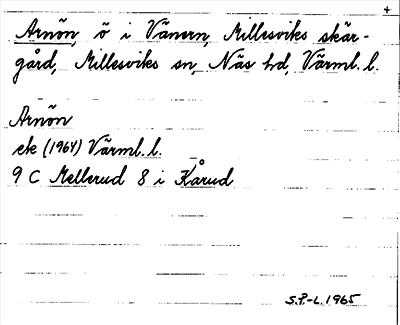 +
Arnön, ö i Vänern, Millesviks skär-
gård, Millesviks sn, Näs hd, Värml. l.
Arnön
ek (1964) Värml. l.
9 C Mellerud 8 i Kårud
S.P.-L. 1965